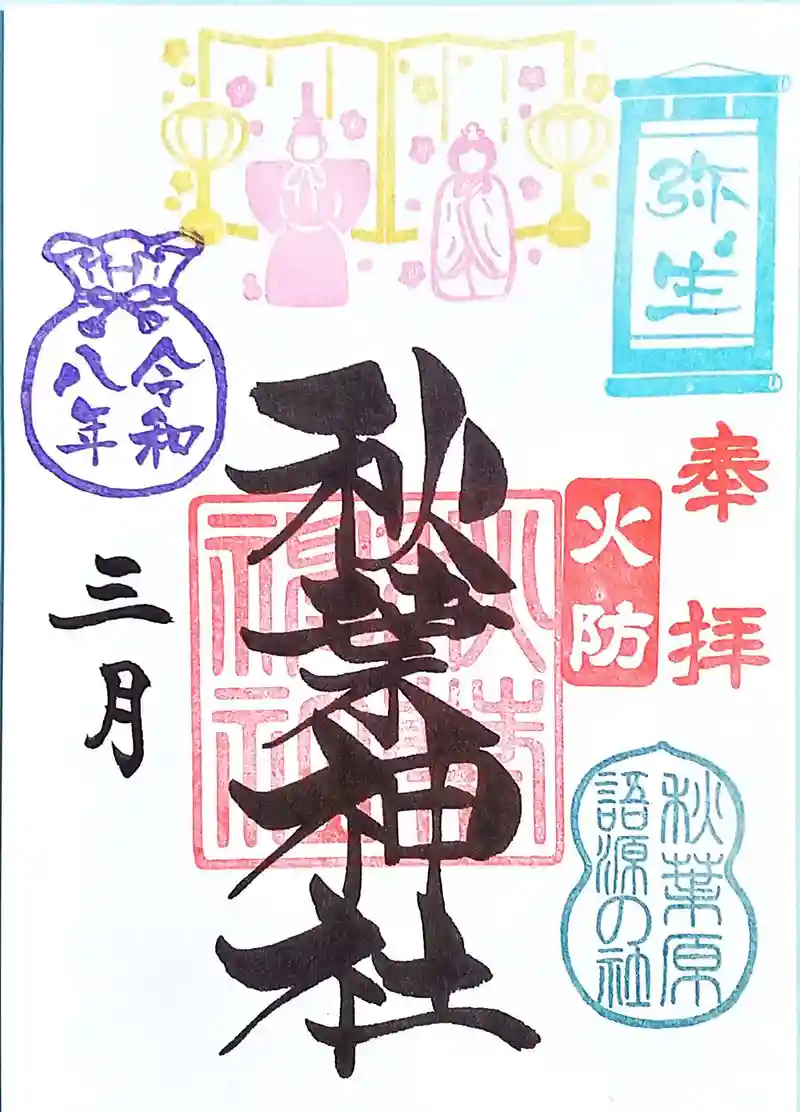 弥生
奉拝
火防
秋葉神社
令和
八年
三月
秋葉原
語源の社